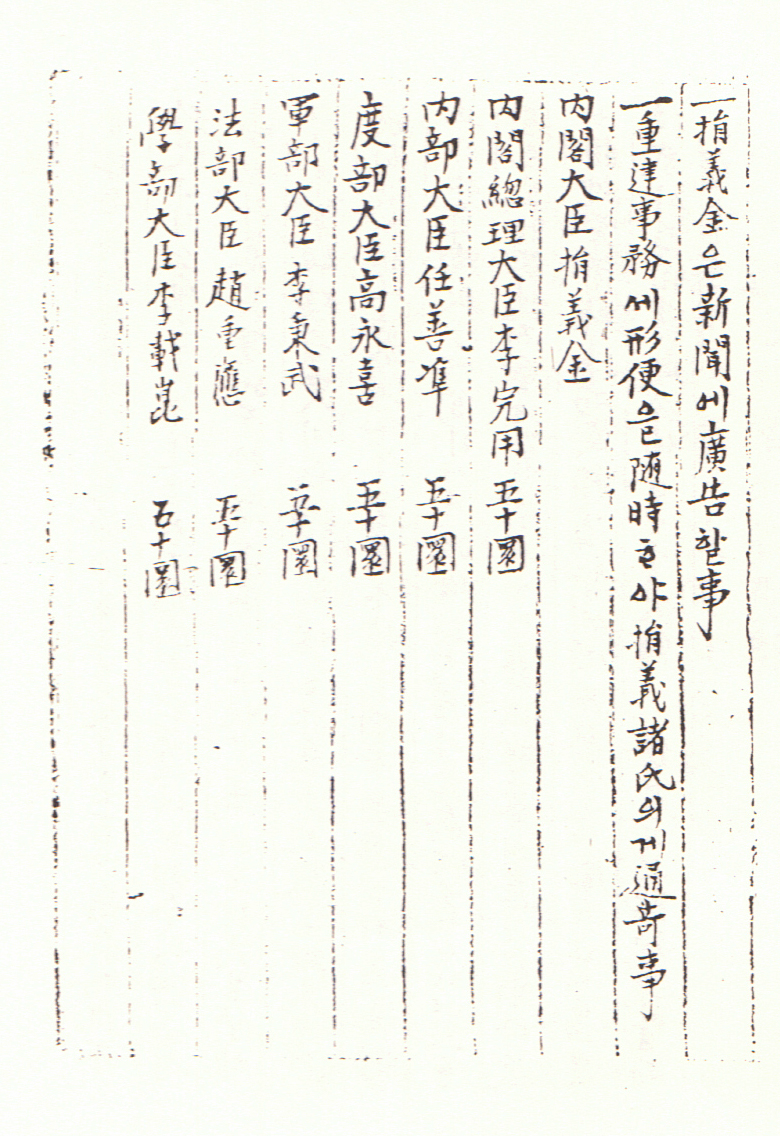 一捐義金은新聞에廣告할事
一重建事務에形便을随時ᄒᆞ야捐義諸氏의게通奇事
内閣大臣捐義金
内閣總理大臣李完用 五十圜
内部大臣任善準 五十圜
度部大臣高永喜 五十圜
軍部大臣李秉武 五十圜
法部大臣趙重應 五十圜
學部大臣李載崑 五十圜